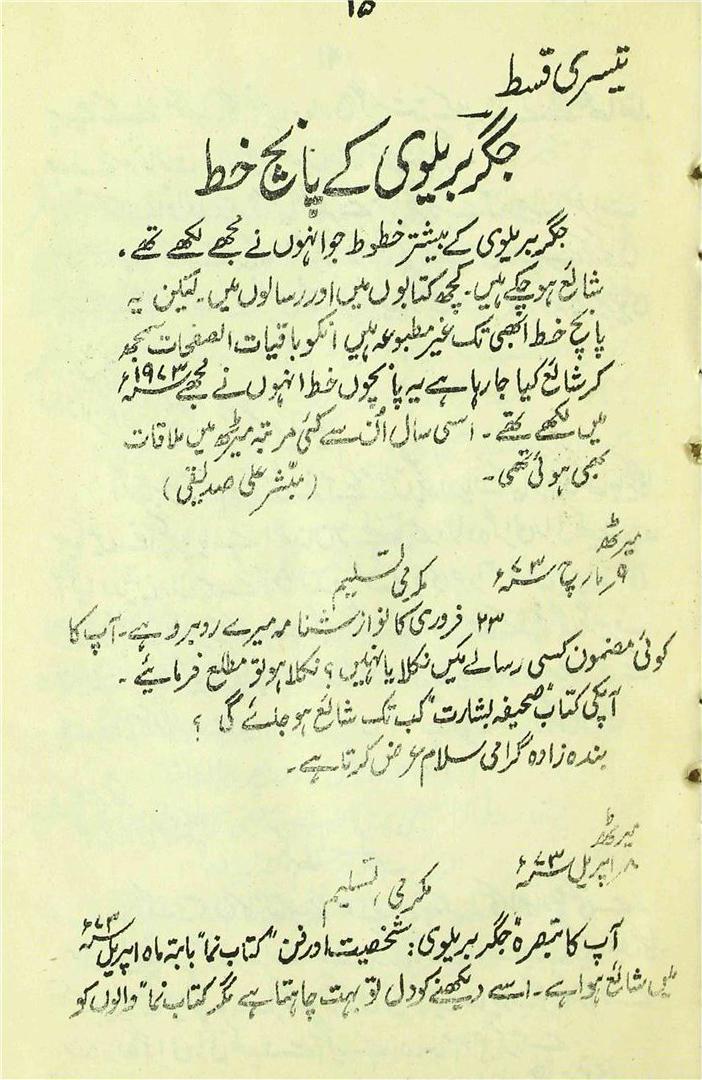 ۱۵
تیسری قسط
جگر بریلوی کے پانچ خط
جگر بریلوی کے بیشتر خطوط جو انہوں نے مجھے لکھے تھے۔
شائع ہو چکے ہیں۔ کچھ کتابوں میں اور رسالوں میں۔ لیکن یہ
پانچ خط ابھی تک غیر مطبوعہ ہیں انکو باقیات الصفحات سمجھ
کر شائع کیا جا رہا ہے یہ پانچوں خط انہوں نے مجھے ۱۹۷۳ء
میں لکھے تھے۔ اسی سال اُن سے کئی مرتبہ میرٹھ میں ملاقات
بھی ہوئی تھی۔ (مبشر علی صدیقی)
میرٹھ
۹ مارچ ۷۳ء
مکرمی تسلیم
۲۳ فروری کا نوازشنامہ میرے روبرو ہے۔ آپ کا
کوئی مضمون کسی رسالے میں نکلا یا نہیں؟ نکلا ہو تو مطلع فرمائیے۔
آپکی کتاب "صحیفہ بشارت" کب تک شائع ہو جائے گی ؟
بندہ زادہ گرامی سلام عرض کرتا ہے۔
میرٹھ
۸ اپریل ۷۳ء
مکرمی، تسلیم
آپ کا تبصرہ "جگر بریلوی: شخصیت اور فن" "کتاب نما" بابتہ ماہ اپریل ۷۳ء
میں شائع ہوا ہے۔ اسے دیکھنے کو دل تو بہت چاہتا ہے مگر "کتاب نما" والوں کو